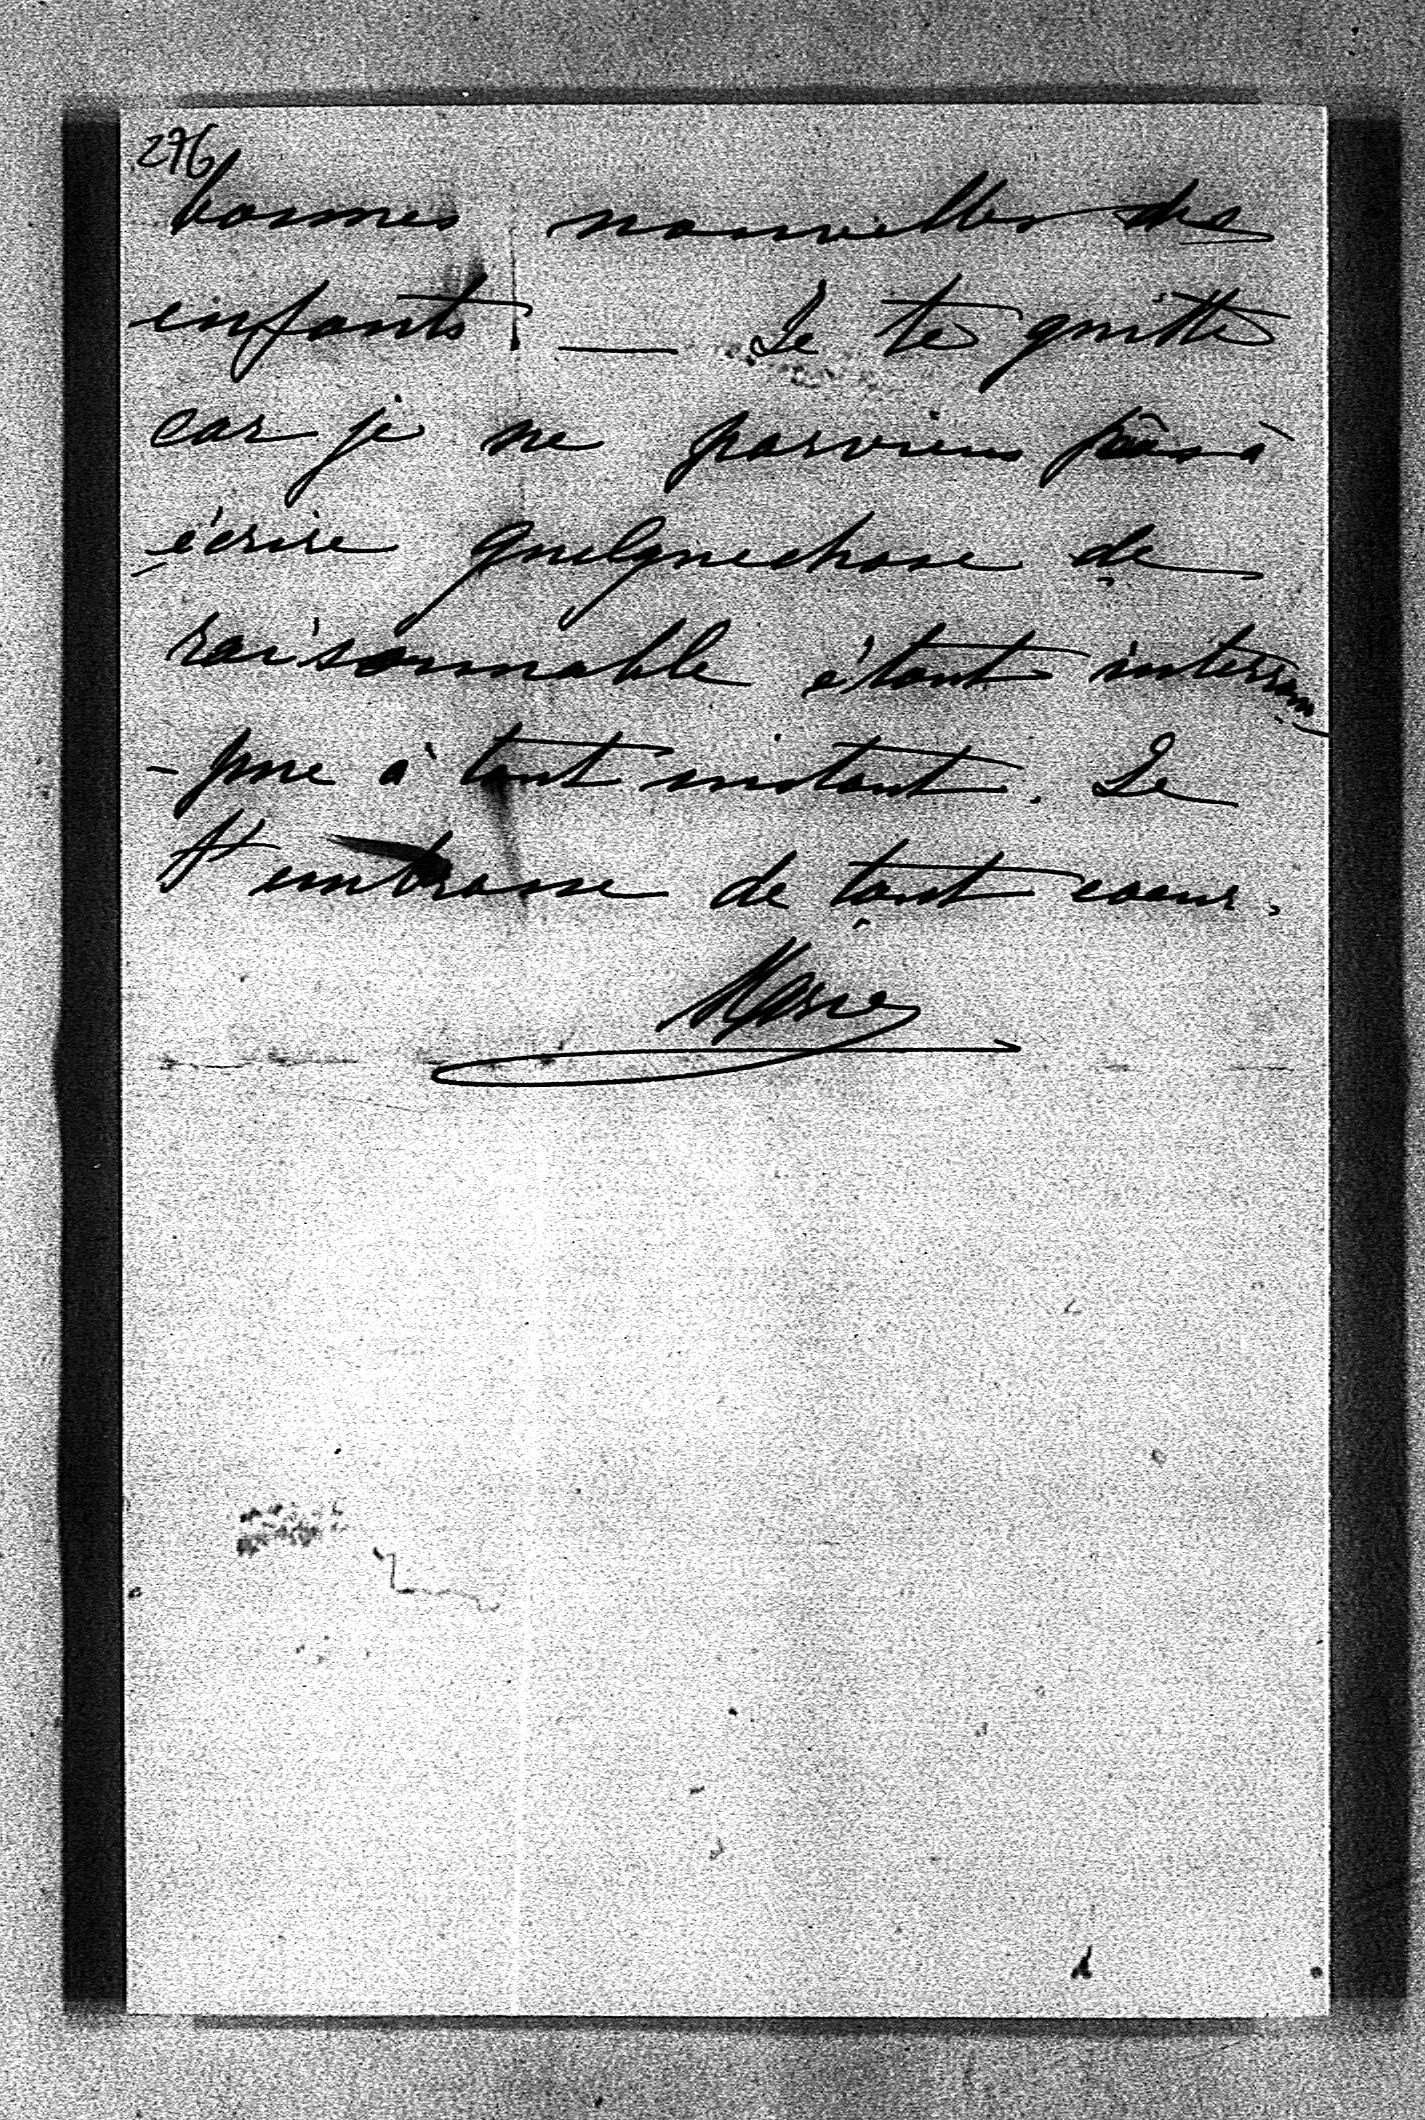 276
bonnes nouvelles des
enfants. — Je te quitte
car je ne parviens pas à
écrire quelquechose de
raisonnable étant interrom
-pue à tout instant. Je
t'embrasse de tout coeur.
Marie